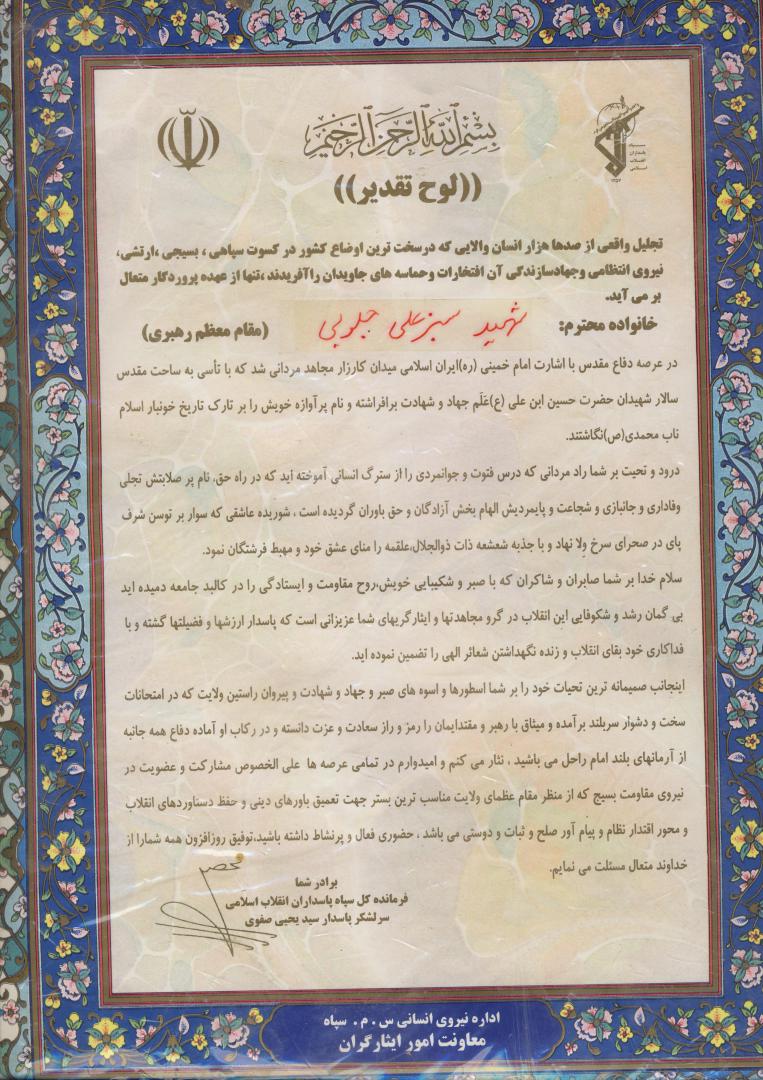 بسم الله الرحمن الرحیم
سپاه
پاسداران
انقلاب
اسلامی
۱۳۵۷
((لوح تقدیر))
تجلیل واقعی از صدها هزار انسان والایی که درسخت ترین اوضاع کشور در کسوت سپاهی ، بسیجی ،ارتشی،
نیروی انتظامی وجهادسازندگی آن افتخارات وحماسه های جاویدان راآفریدند ،تنها از عهده پروردگار متعال
بر می آید.
(مقام معظم رهبری)
خانواده محترم: شهید سبزعلی جلوبی
در عرصه دفاع مقدس با اشارت امام خمینی (ره)ایران اسلامی میدان کارزار مجاهد مردانی شد که با تأسی به ساحت مقدس
سالار شهیدان حضرت حسین ابن علی (ع)عَلَم جهاد و شهادت برافراشته و نام پرآوازه خویش را بر تارک تاریخ خونبار اسلام
ناب محمدی(ص)نگاشتند.
درود و تحیت بر شما راد مردانی که درس فتوت و جوانمردی را از سترگ انسانی آموخته اید که در راه حق، نام پر صلابتش تجلی
وفاداری و جانبازی و شجاعت و پایمردیش الهام بخش آزادگان و حق باوران گردیده است ، شوریده عاشقی که سوار بر توسن شرف
پای در صحرای سرخ وِلا نهاد و با جذبه شعشعه ذات ذوالجلال،علقمه را منای عشق خود و مهبط فرشتگان نمود.
سلام خدا بر شما صابران و شاکران که با صبر و شکیبایی خویش،روح مقاومت و ایستادگی را در کالبد جامعه دمیده اید
بی گمان رشد و شکوفایی این انقلاب در گرو مجاهدتها و ایثارگریهای شما عزیزانی است که پاسدار ارزشها و فضیلتها گشته و با
فداکاری خود بقای انقلاب و زنده نگهداشتن شعائر الهی را تضمین نموده اید.
اینجانب صمیمانه ترین تحیات خود را بر شما اسطورها و اسوه های صبر و جهاد و شهادت و پیروان راستین ولایت که در امتحانات
سخت و دشوار سربلند برآمده و میثاق با رهبر و مقتدایمان را رمز و راز سعادت و عزت دانسته و در رکاب او آماده دفاع همه جانبه
از آرمانهای بلند امام راحل می باشید ، نثار می کنم و امیدوارم در تمامی عرصه ها علی الخصوص مشارکت و عضویت در
نیروی مقاومت بسیج که از منظر مقام عظمای ولایت مناسب ترین بستر جهت تعمیق باورهای دینی و حفظ دستاوردهای انقلاب
و محور اقتدار نظام و پیام آور صلح و ثبات و دوستی می باشد ، حضوری فعال و پرنشاط داشته باشید،توفیق روزافزون همه شمارا از
خداوند متعال مسئلت می نمایم.
برادر شما
فرمانده کل سپاه پاسداران انقلاب اسلامی
سرلشکر پاسدار سید یحیی صفوی
اداره نیروی انسانی س . م . سپاه
معاونت امور ایثارگران